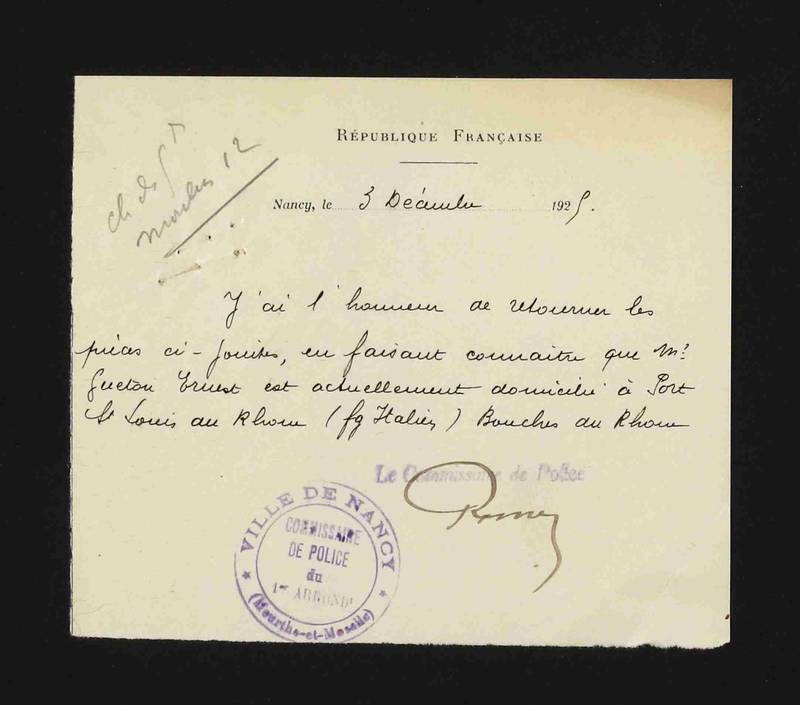 RÉPUBLIQUE FRANÇAISE
ch de
Nancy, le 3 Décembre 1925.
J'ai l'honneur de retourner les
pièces ci-jointes, en faisant connaitre que Mr
Ernest est actuellement domicilié à Port
St Louis du Rhone (fg Italien) Bouches du Rhone
Le Commissaire de Police
VILLE DE NANCY
COMMISSAIRE
DE POLICE
du
1er ARRONDt
(Meurthe-et-Moselle)